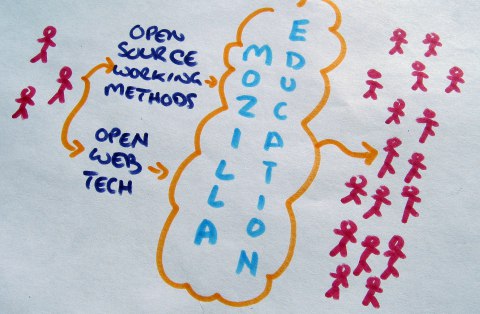 OPEN
SOURCE
WORKING
METHODS
OPEN
WEB
TECH
MOZILLA
EDUCATION